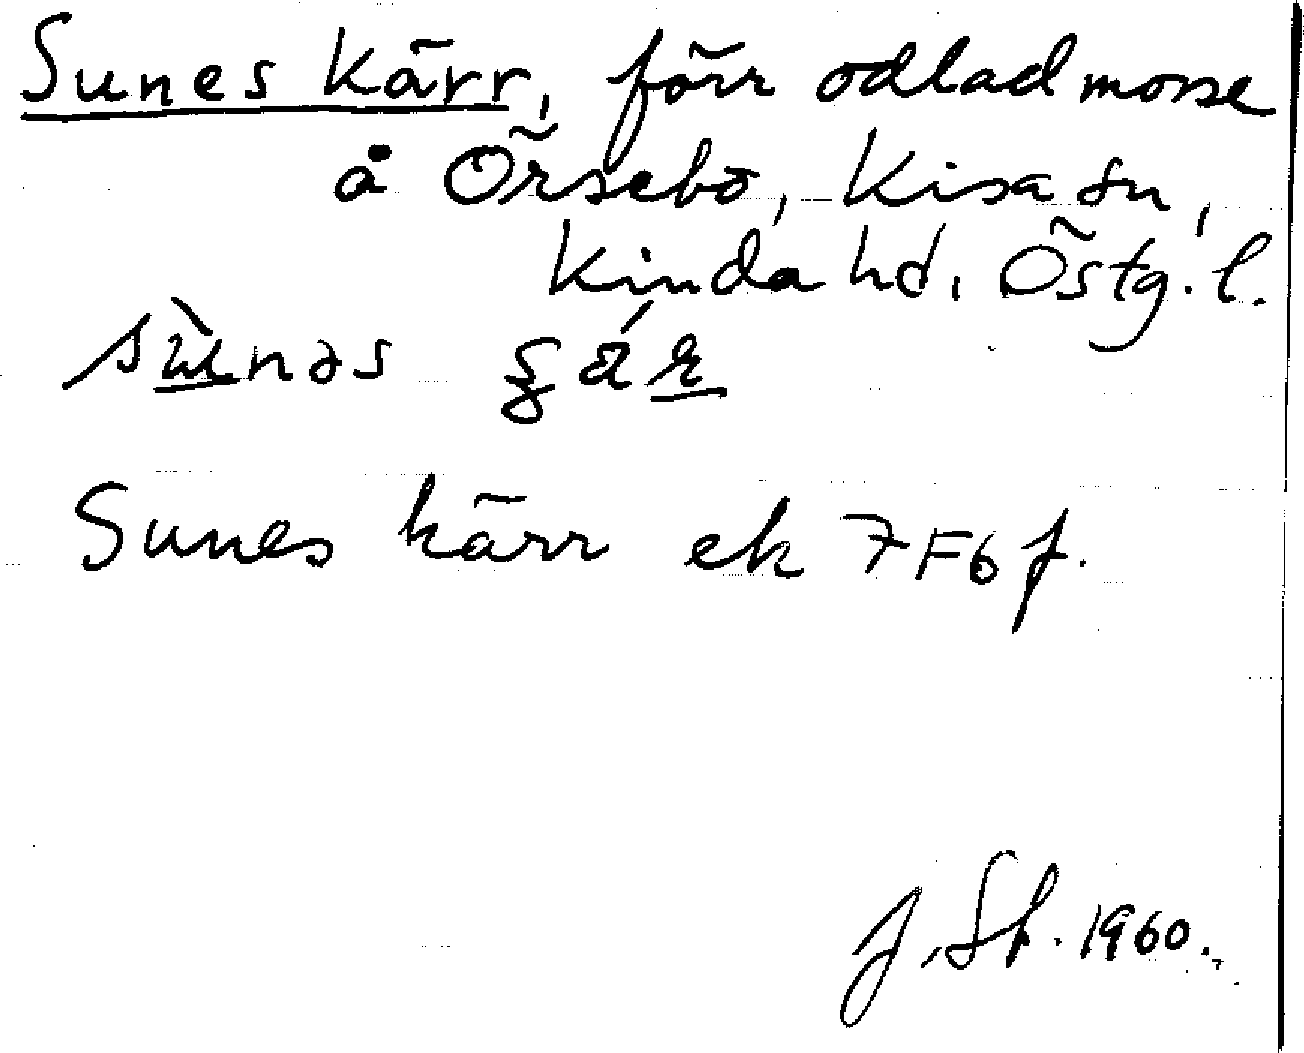 Sunes Kärr, förr odlad mosse
å Örsebo, Kisa sn,
Kinda hd. Östg. l.
Sunes kärr ek 7F6f.
J. St. 1960.